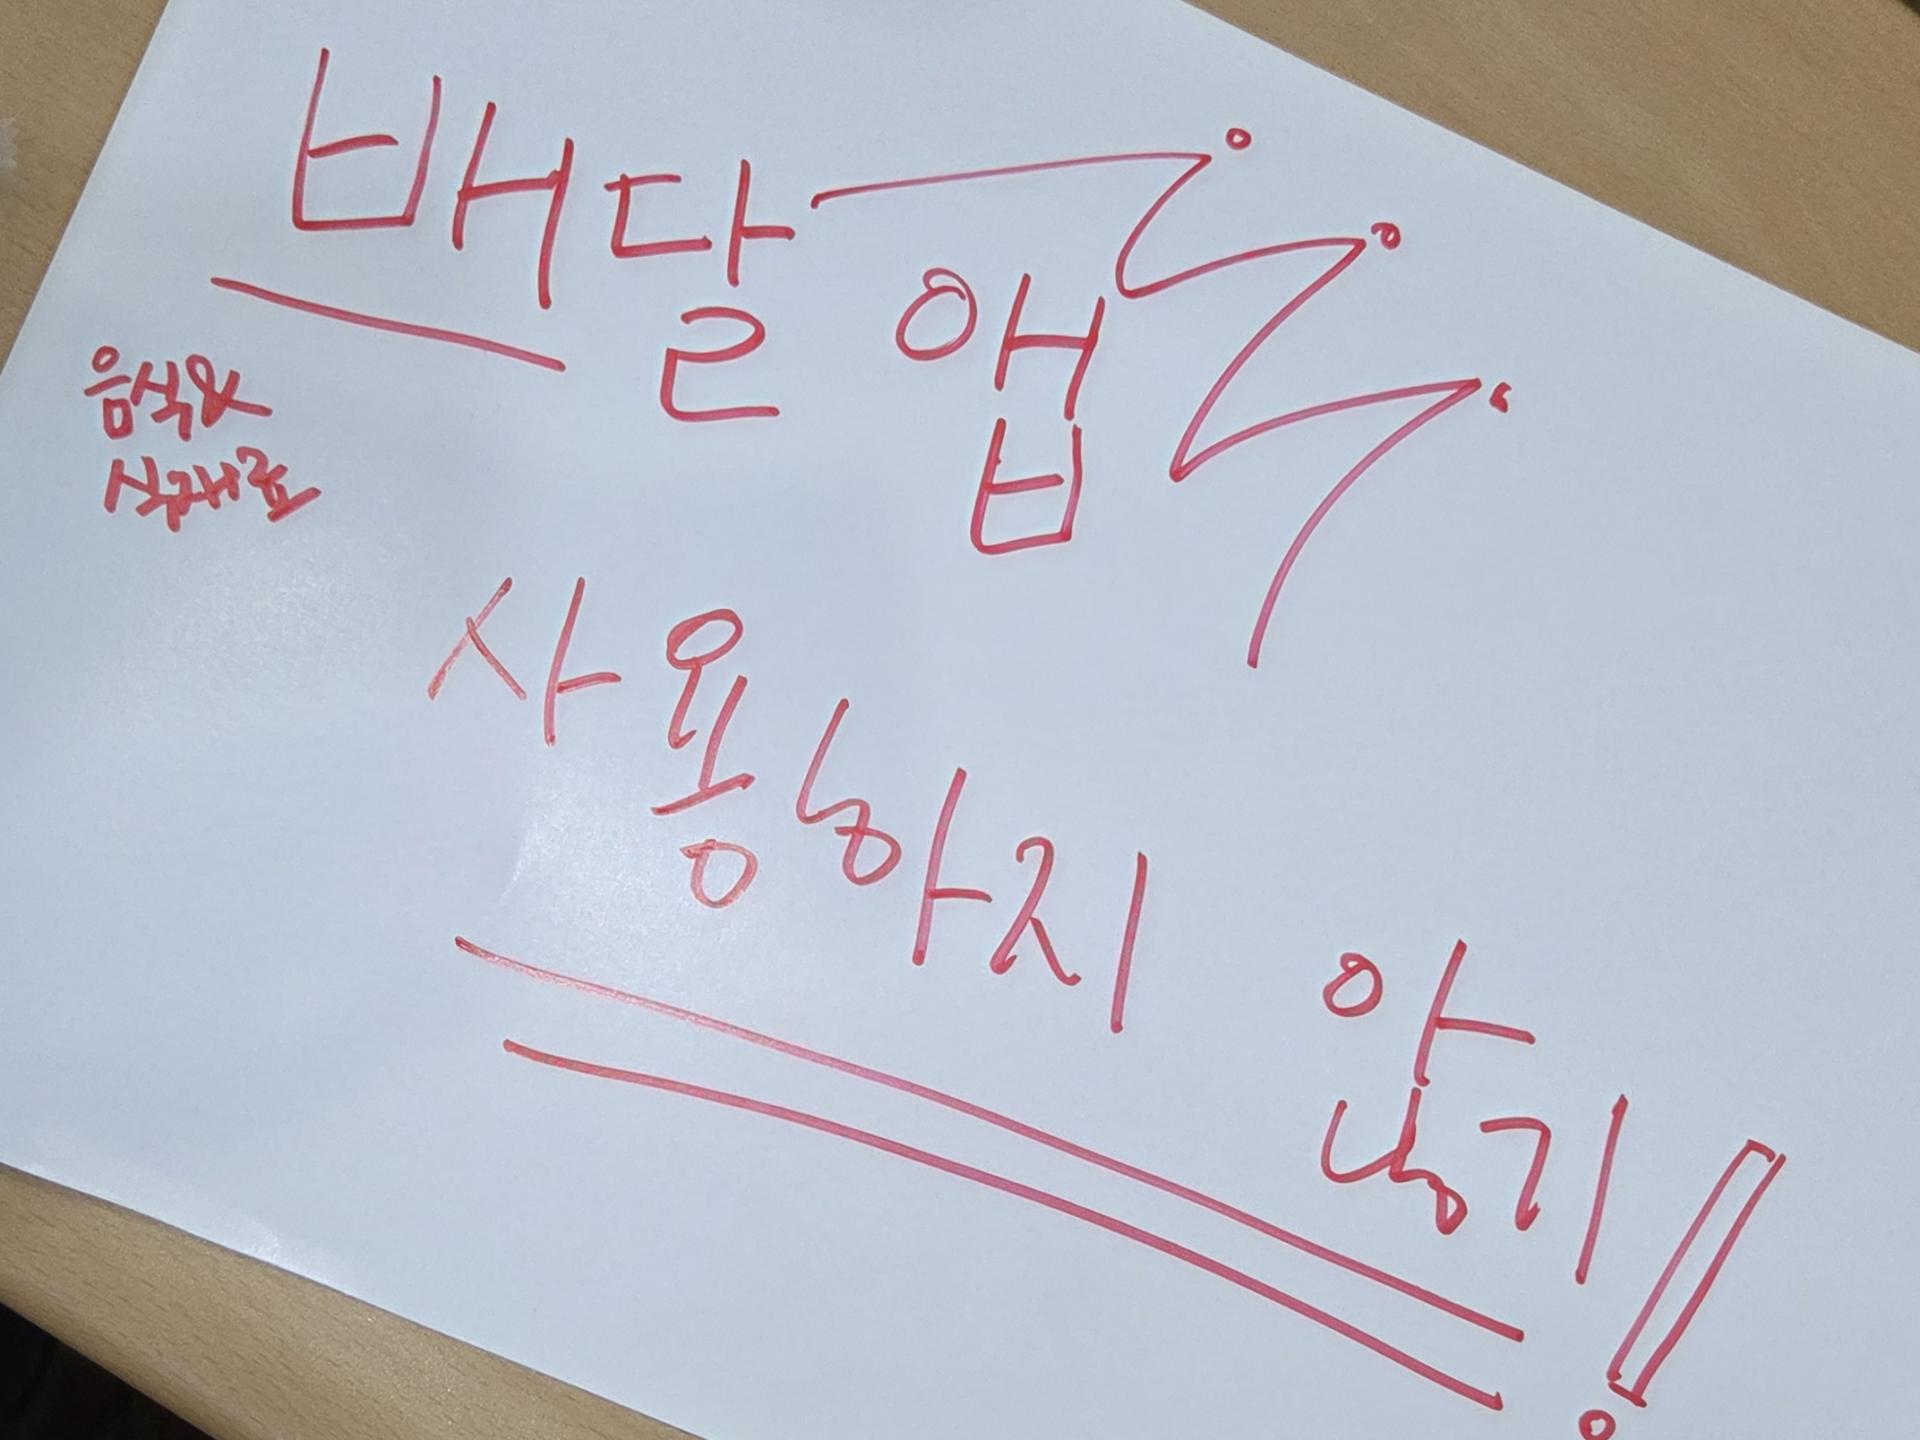 배달앱
음식&
식재료
사용하지 않기!